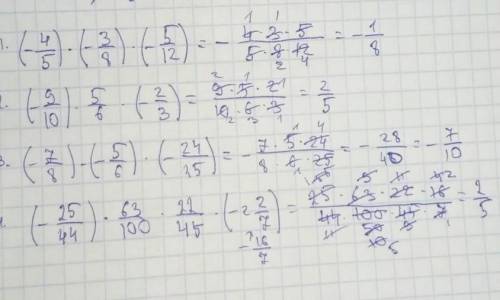 1. (-4/5) · (-3/8) · (-5/12) = - (4·3·5)/(5·8·12) = - 1/8
(-9/10) · 5/6 · (-2/3) = (9·5·21)/(10·6·3) = 2/5
3. (-7/8) · (-5/6) · (-24/25) = - (7·5·24)/(8·6·25) = - 28/40 = - 7/10
(-25/44) · 63/100 · 22/45 · (-2 2/7) = (25·63·22·16)/(44·100·45·7) = 2/5
- 16/7